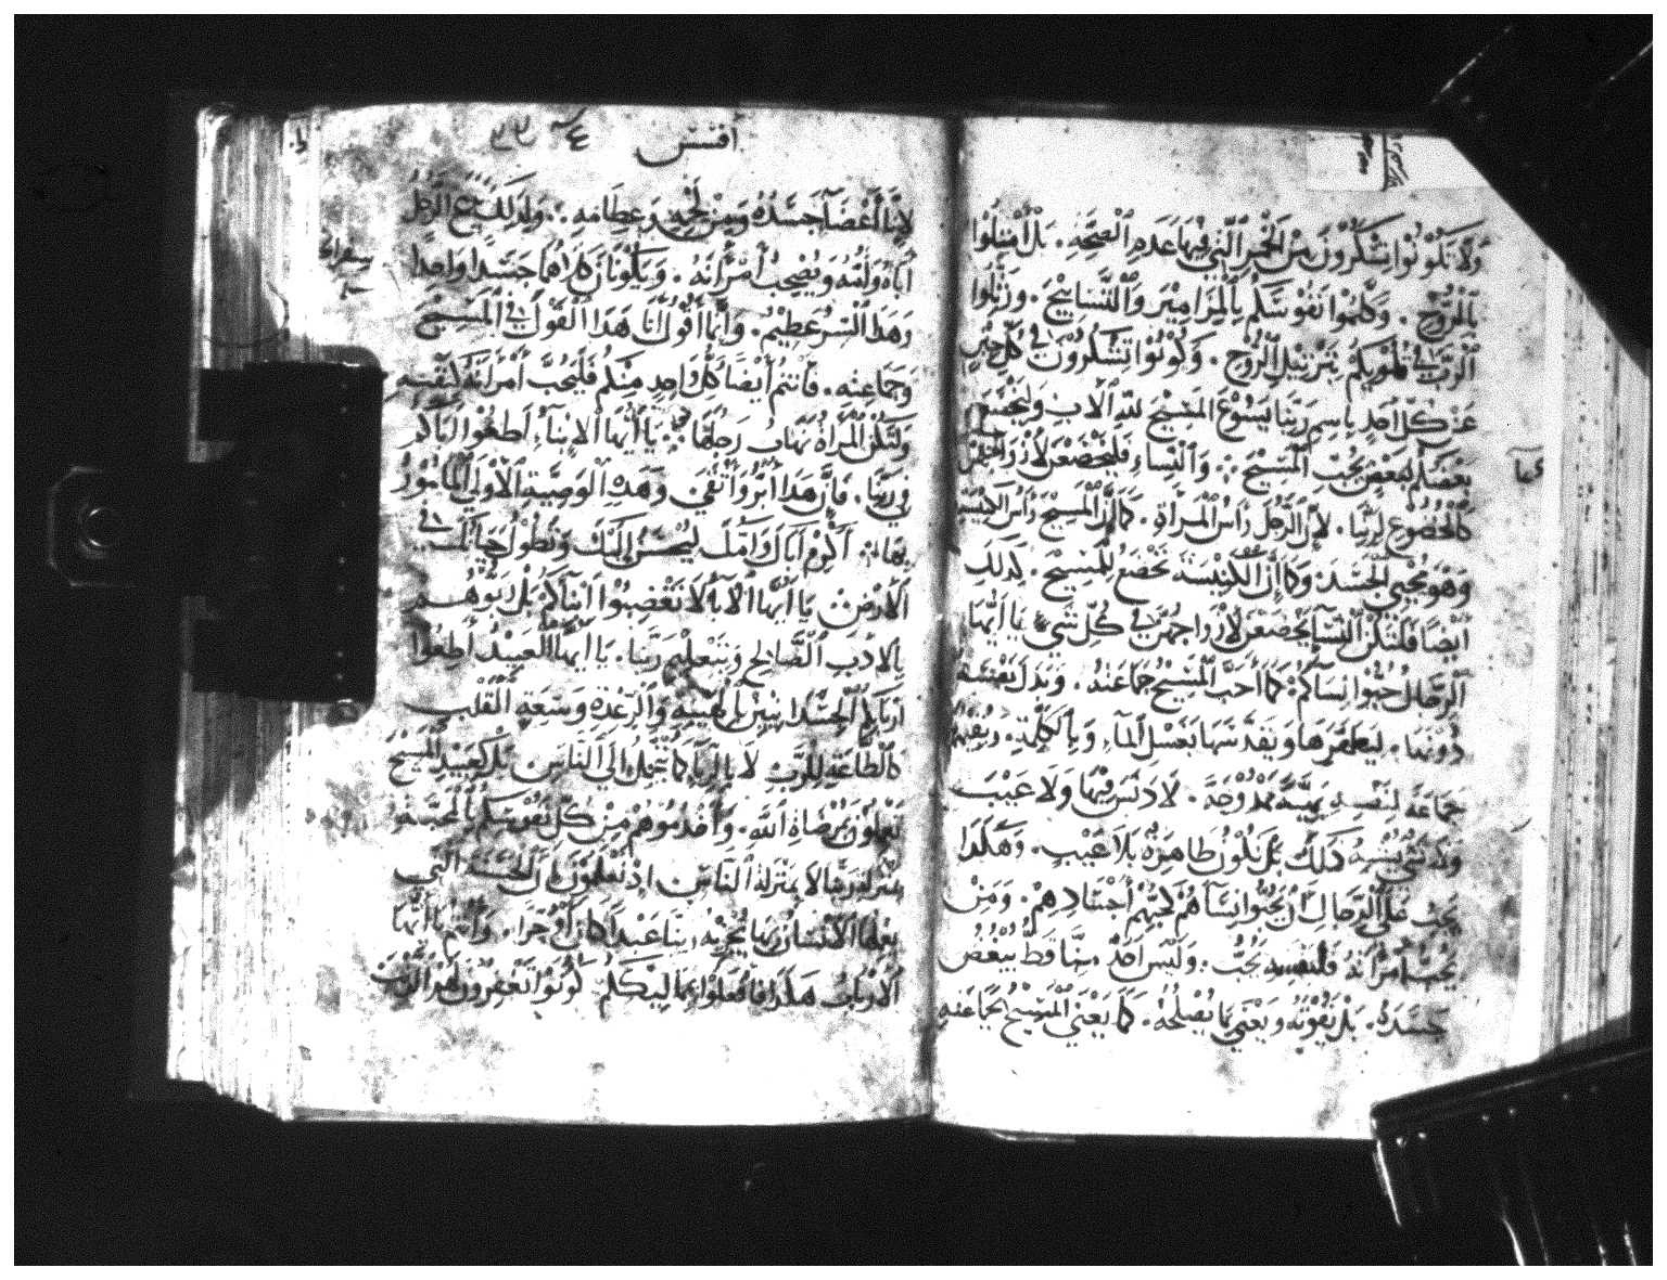 وَلَا تَكُوْنُوْا تَسْكَرُوْنَ مِنَ الْخَمْرِ الَّتِي فِيْهَا عَدَمِ الصِّحَّهِ. بَلْ أَمْتَلُوْا
بِالرُّوْحِ. وَكَلِّمُوْا نَفُوْسَكُمْ بِالْمَزَامِيْرِ وَالتَّسَابِيْحَ. وَرَتِّلُوا
الرَّبَّ فِي قُلُوْبِكُمْ بِتَرْتِيْلِ الرُّوْحِ. وَكُوْنُوْا تَشْكُرُوْنَ فِي كُلِّ حِيْنٍ
عَنْ كُلِّ أَحَدٍ بِاسِمِ رَبِّنَا يَسُوْعَ الْمَسِيْحَ لله الْأَبِ وَلْيَخْضَعْ
بَعْضُكُمْ لِبَعْضٍ بِحُبِّ الْمَسِيْحَ. وَالنِّسَاءِ فَلْيَخْضَعْنَ لأَزْوَاجِهِنَّ
كَالْخُضُوْعِ لِرَبِّنَا. لِأَنَّ الرَّجُلَ رَاسُ الْمَرْأَةِ. كَمَا أَنَّ الْمَسِيْحَ رَأْسُ الْكَنِيْسَة
وَهْوَ مُحْيِي الْجَسَدَ: وَكَمَا إِنَّ الْكَنِيْسَةَ تَخْضَعُ لِلْمَسِيْحِ. كَذَلِكَ
أَيْضًا فَلْتَكُنِ النِّسَآ يَخْضَعْنَ لأَزْوَاجِهِنَّ فِي كُلِّ شَيءٍ يَا أَيُّهَا
الرِّجَالُ حِبُّوْا نِسَآكُمْ: كَمَا أَحَبَّ الْمَسِيْحُ جَمَاعَتَهُ. وَبَذَلَ نَفْسَهُ
دُوْنَهَا. لِيُطَهِّرَهَا وَيُقَدِّسَهَا بِغَسْلِ الْمَآءِ وَبِالْكَلِمَةِ. وَيُقِيْمَهَا
جَمَاعَةً لِنَفْسِهِ بَهِيَّةً مَمْدُوْحَةً. لَا دَنَسَ فِيْهَا وَلَا عَيْبَ
وَلَا شَيْ يُشْبِهُ ذَلِكَ بَلْ تَكُوْنُ طَاهِرَةً بِلَا عَيْبٍ. وَهَكَذَا
يَجِبُ عَلَى الرِّجَالِ أَنْ يُحِبُّوا نِسَآهُمْ لِحُبِّهِمْ أَجْسَادِهِمْ. وَمَنْ
يُحِبُّ أَمْرَأَتَهُ فَلِنَفْسِهِ يُحِبُّ. وَلَيْسَ أَحَدٌ مِنَّا قَطُّ يُبْغِضُ
جَسَدَهُ. بَلْ يَقُوْتُهُ وَيَعْنِي بِمَا يُصْلِحُهُ. كَمَا يَعْنَي الْمَسِيْحُ بِجَمَاعَتِهِ
أفسس
لِأَنَّا أَعْضَآ جَسَدُهُ وَمِنْ لَحْمِهِ وَعِظَامِهِ. وَلِذَلِكَ يَدَعُ الرَّجُلُ
أَبَاهُ وَأُمَّهُ وَيَصْحِبُ أمْرَأَتَهُ. وَيَكُوْنَانِ كِلَاهُمَا جَسَدًا وَاحِدًا
وَهَذَا السِّرُّ عَظِيْمٌ. وَإِنَّمَا أَقُوْلُ أَنَا هَذَا الْقَوْلَ فِي الْمَسِيْحِ
وَجَمَاعِتِهِ. فَأَنْتُمْ أَيْضًا كُلُّ وَاحِدٍ مِنْكُمْ فَلْيُحِبَّ أَمْرَأَتَهُ كَنَفْسِهِ
وَلْتَكُنِ الْمَرْأَةُ تَهَابُ رَجُلَهَا يَا أَيُّهَا الْأَبْنَاءُ أَطِيْعُوْا أَبَاكُمْ
فِي رَبِّنَا. فَإِنَّ هَذَا أَبَرُّ وَأَتْقَى وَهَذِهِ الْوَصِيَّةِ الْأُوْلَي الْمَأْمُوْرُ
بِهَا: أَكْرِمْ أَبَاكَ وَأُمَّكَ لِيُحْسَنَ إِلَيْكَ وَتَطُوْلُ حَيَاتُكَ فِي
الْأَرْضِ. يَا أَيُّهَا الْأَبآ لَا تُغْضِبُوْا أَبْنَآكُمْ بَلْ رَبُّوْهُمْ
بِالْأَدَبِ الصَّالِحِ وَبِتَعْلِيْمِ رَبِّنَا. يَا أَيُّهَا الْعَبِيْدُ أَطِيْعُوْا
أَرْبَابَكُمُ الْجَسْدَانِيِّيْنَ بِالْهَيْبَةِ وَالرِّعْدَةِ وَسَعَةِ الْقَلْبِ
كَالطَّاعَةِ لِلرَّبِّ لَا بِالرِّيَاءِ كَمَا يُتَجَمَّلُ إِلَي النَّاسِ. بَلْ كَعَبِيْدِ الْمَسِيْحَ
تَعْمَلُوْنَ بِمَرْضَاةِ اللهِ. وَأَخْدِمُوْهُمْ مِنْ كُلِّ نَفُوْسِكُمْ بِالْمَحَبَّةِ
بِمَنْزِلَةِ رَبِّنَا لَا بِمَنْزِلَةِ النَّاسِ إِذْ تَعْلَمُوْنَ أَنَّ الْحَسَنَةَ الَّتِي
يَعْمَلُهَا الْأَنْسَانُ بِهَا يَجْزِيْهُ رَبُّنَا عَبْدًا كَانَ أَوْ حُرًّا. وَأَنْتُمْ يَا أَيُّهَا
الْأَرْبَابُ هَكَذَا فَافْعَلُوْا بِمَمَالِيْكِكُمْ كُوْنُوْا تَغْفِرُوْنَ لَهُمُ الذَّنْبَ